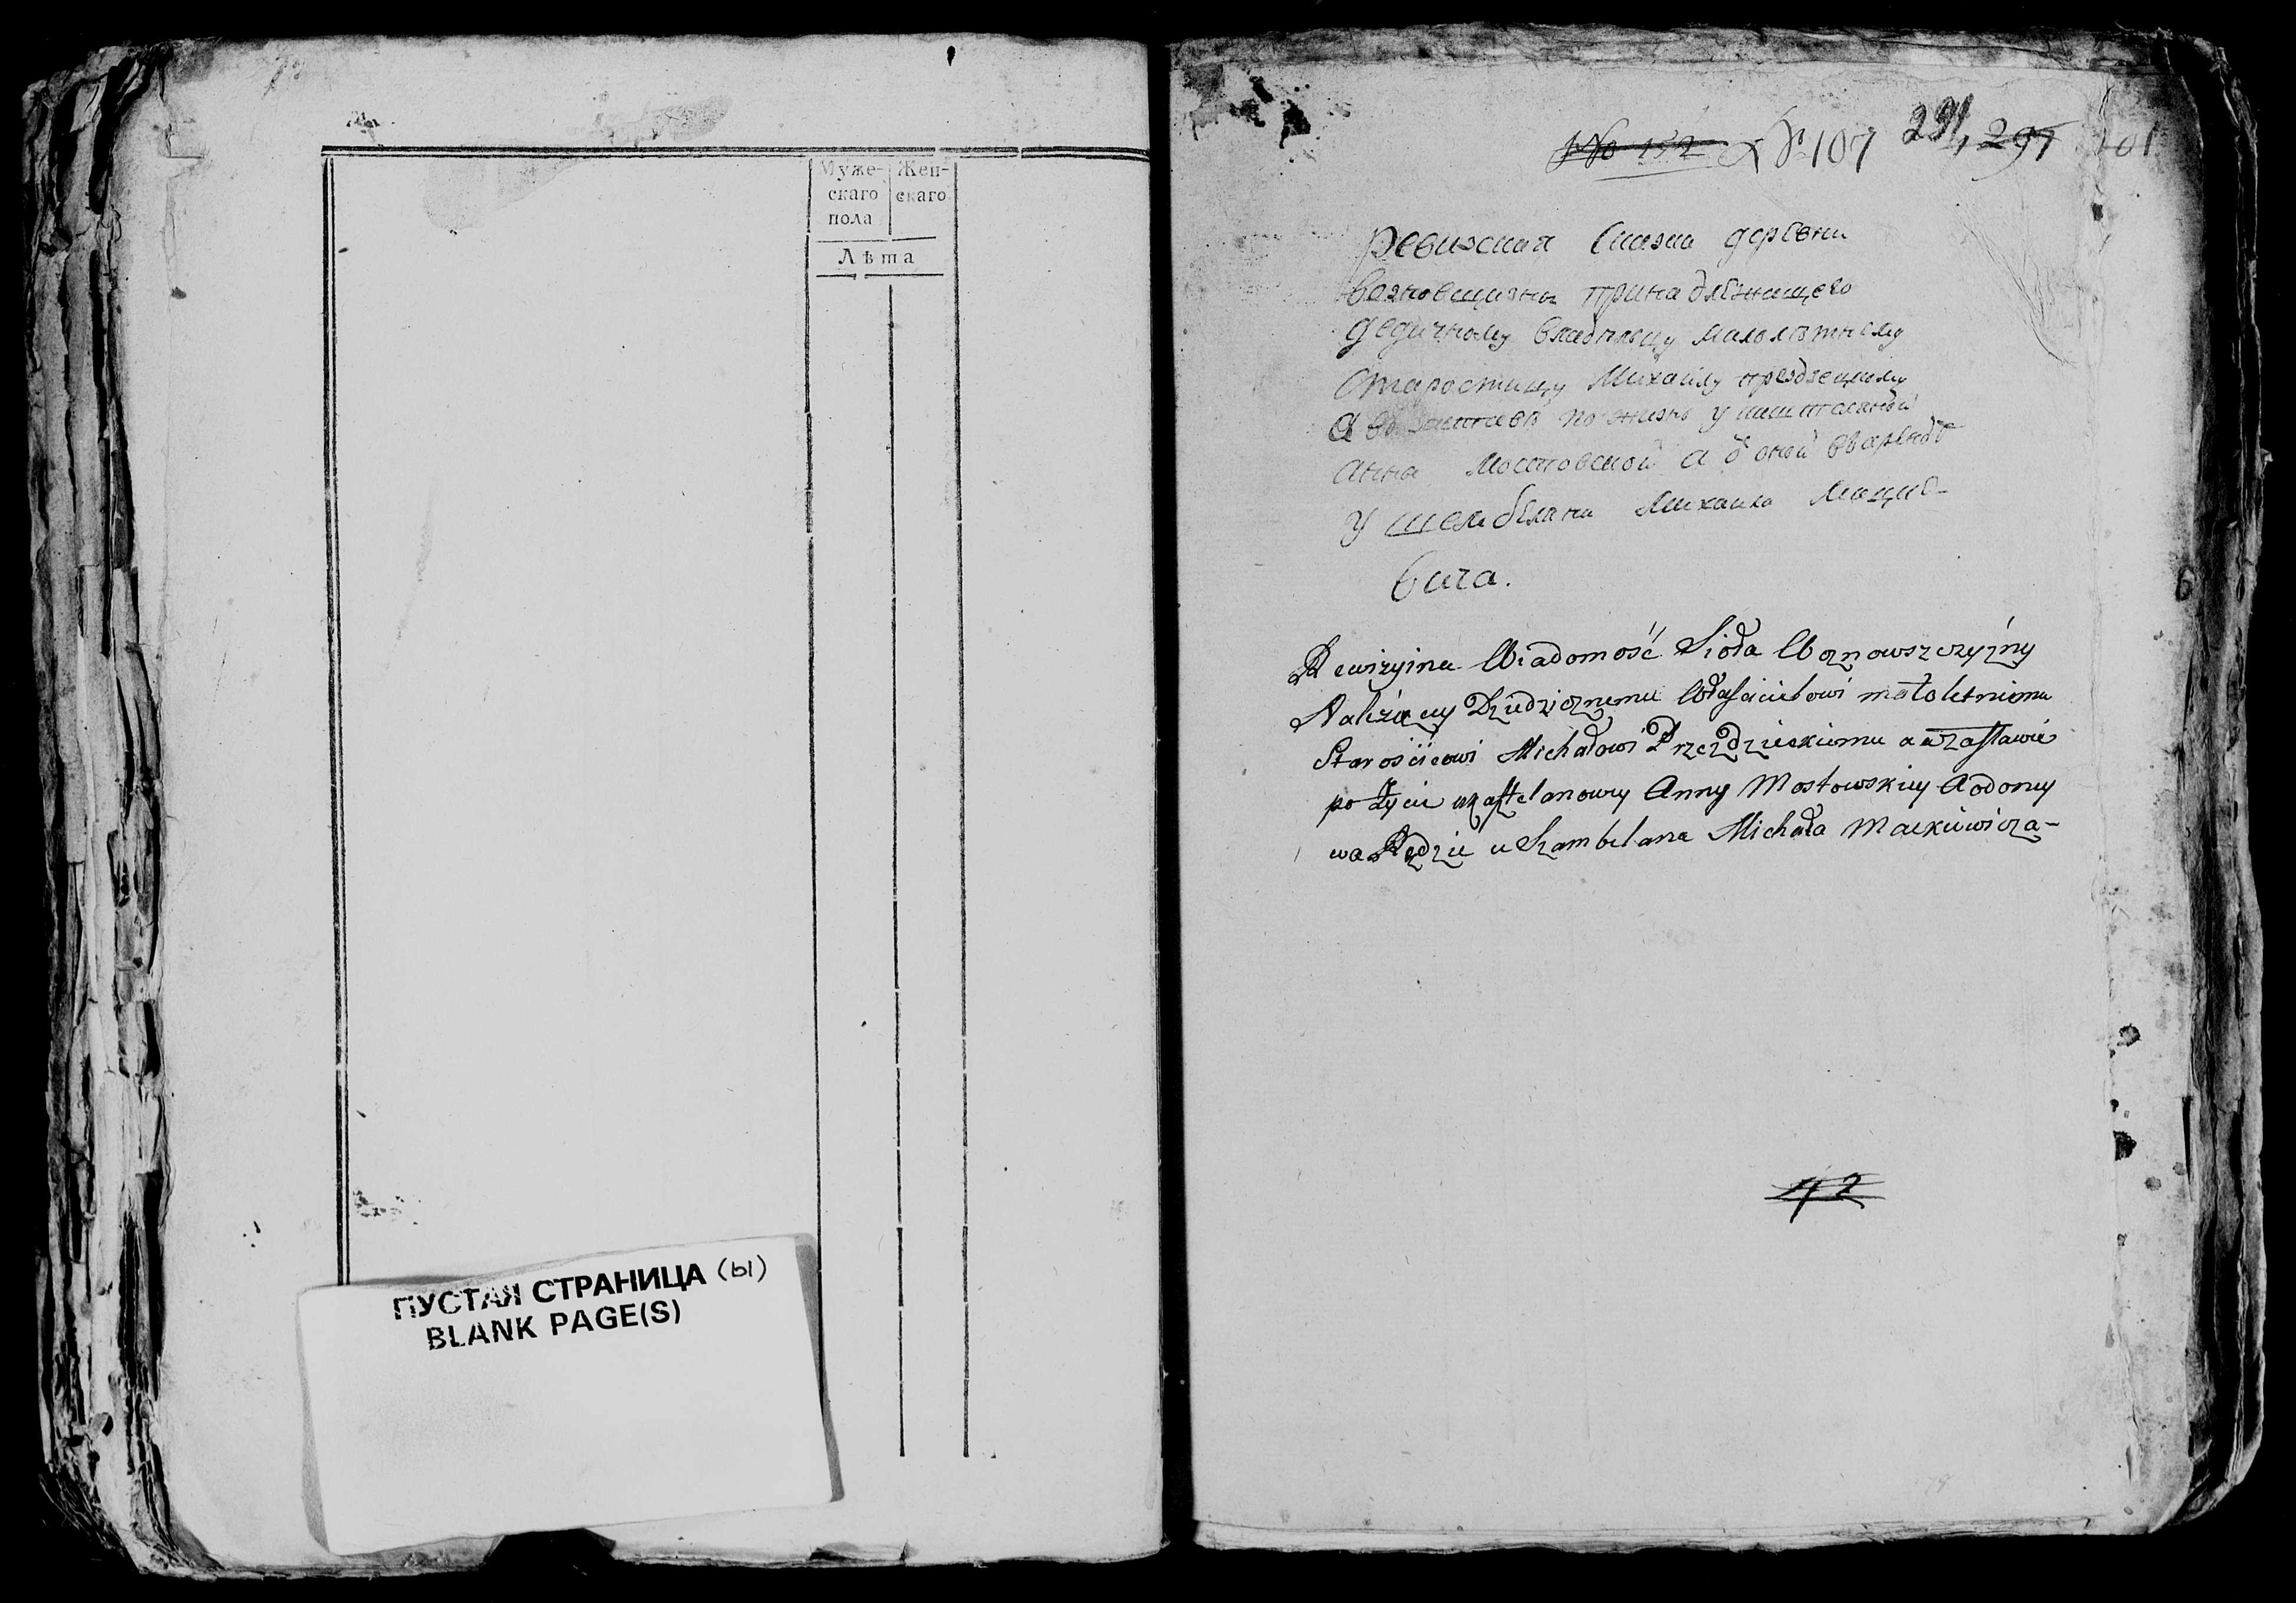 Муже-
скаго
пола
Жен-
скаго
Лѣта
ПУСТАЯ СТРАНИЦА (Ы)
BLANK PAGE(S)
No 152 № 107 291, 297
Ревизская Сказка деревни
Вазновщизны принадлежащего
дедичному владельцу малолѣтнему
Старостицу Михаилу Прездзецкому
а в заставѣ по жизнь у каштеляновой
Анны Мостовской а оной в варендѣ
у шамбеляна Михаила Мацке-
вича.
Rewizyina Wiadomość Sioła Woznowszczyzny
Należący Dziedzicznemu Właścicielowi małoletniemu
Starościcowi Michałowi Przezdzieckiemu a w zastawie
po życie u kasztelanowy Anny Mostowskiey a od oney
w a Rędzie u Szambelana Michała Mackiewicza-
42